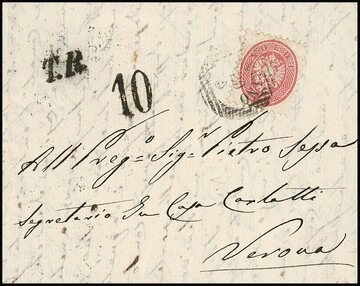 T.R.
10
All Preg.o Sig.r Pietro Sessa
Segretario In Casa Carlotti
Verona